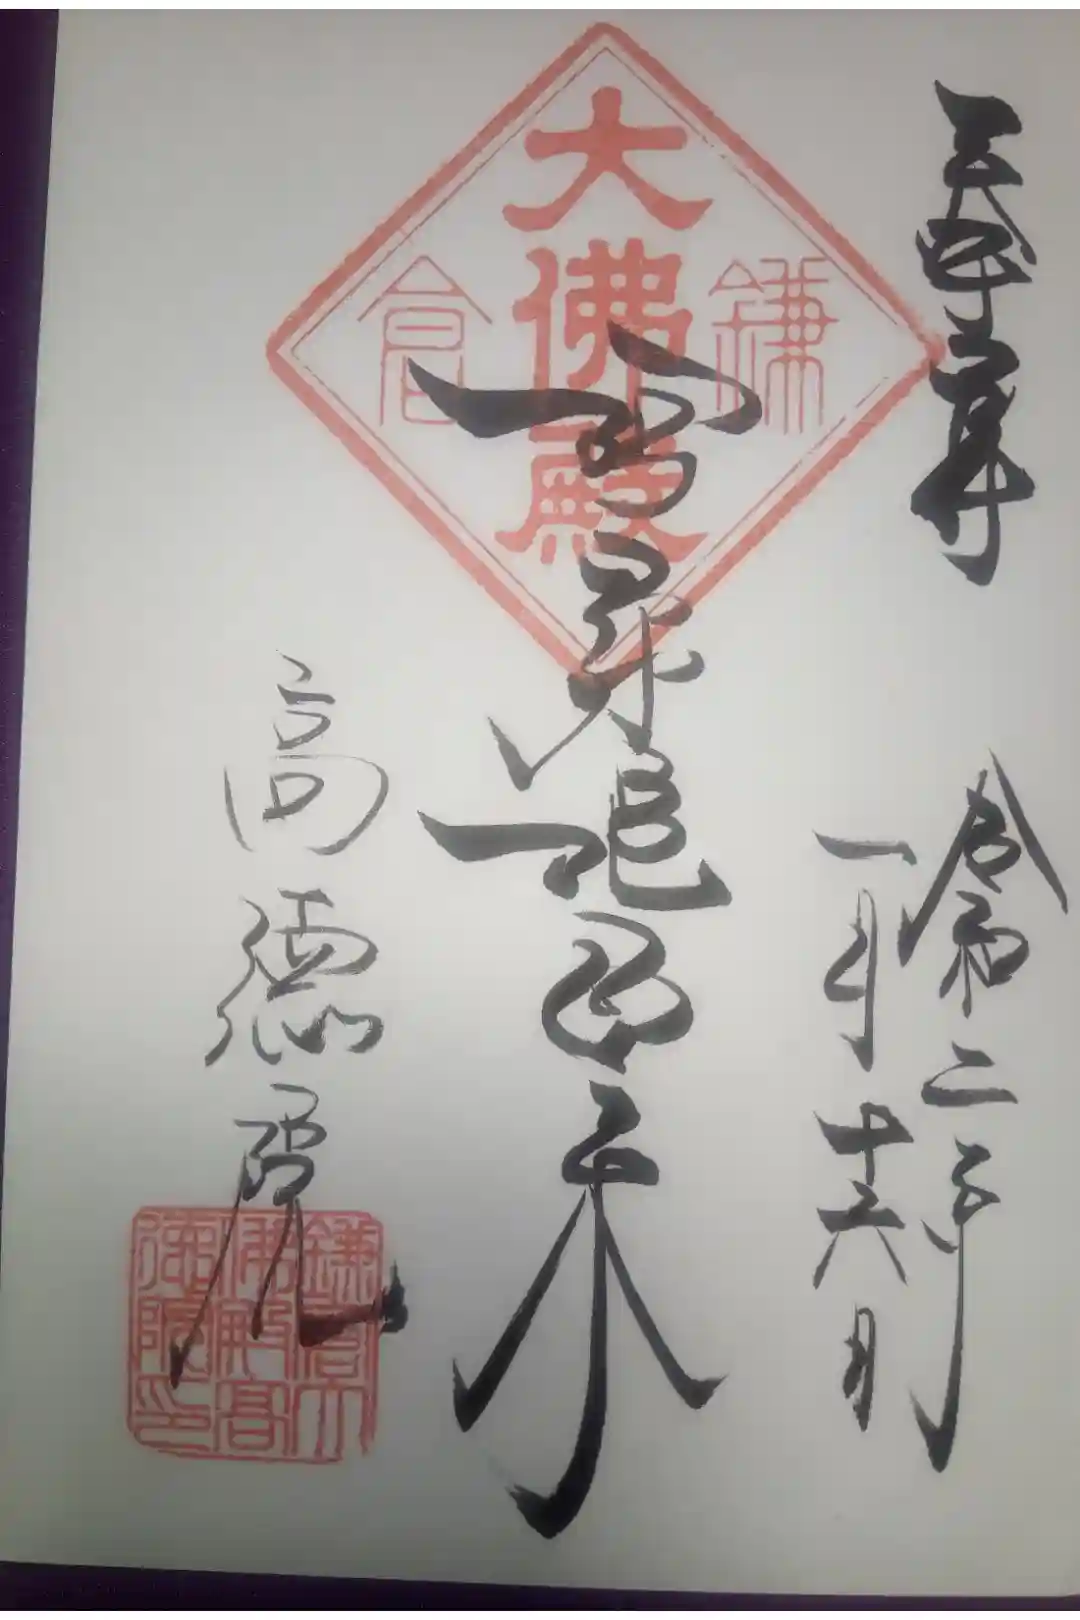 令和二年
一月十六日
鎌
大佛殿
倉
阿弥陀如来
高德院
鎌倉大
佛殿高
德院印